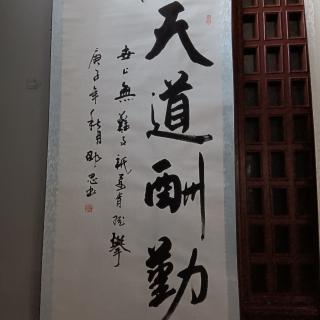 天道酬勤
世上無難事祇要肯攀
庚子年秋月